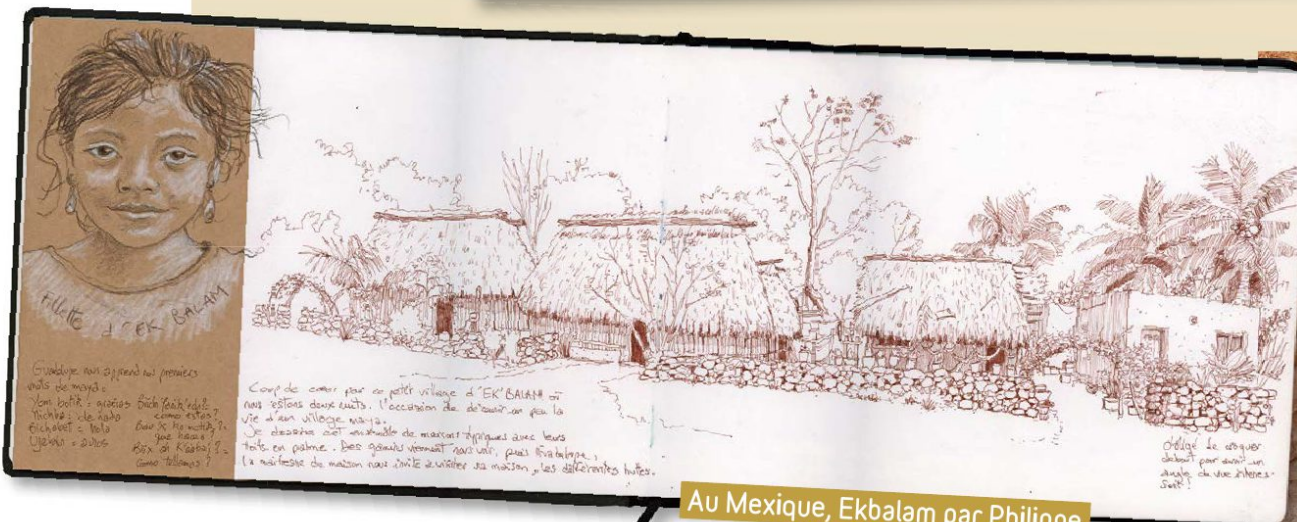 Fillette d'EK BALAM
Guadalupe nous apprend nos premiers
mots de maya :
Yom botik = gracias
como estas ?
que haces ?
Coup de cœur par ce petit village d'EK'BALAM où
nous restons deux nuits. l'occasion de découvrir un peu la
vie d'un village maya.
Je dessine cet ensemble de maisons typiques avec leurs
toits en palme. Des gamins viennent nous voir, puis Guadalupe,
la maîtresse de maison nous invite à visiter sa maison, les différentes huttes.
obligé de croquer
debout pour avoir un
angle de vue intéres-
sant !
Au Mexique, Ekbalam par Philippe